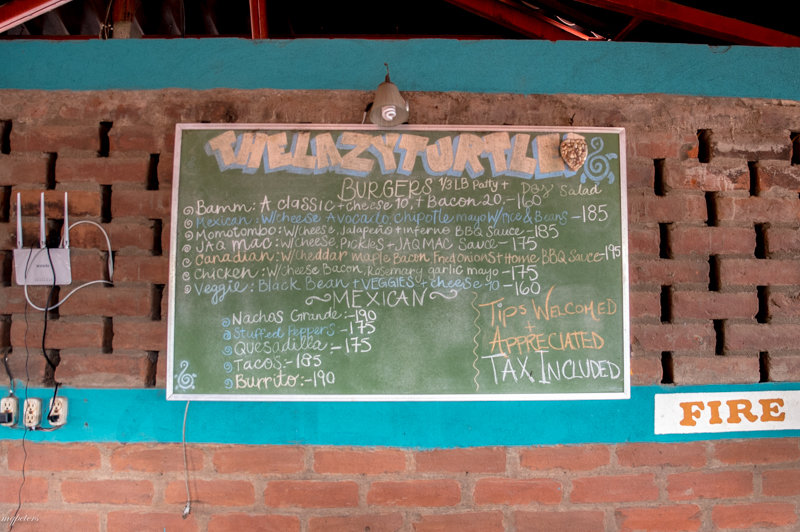 THE LAZY TURTLE
BURGERS 1/3 LB Patty + Salad
Bamm: A classic + cheese 10, + Bacon 20. -160
Mexican: W/cheese Avocado chipotle mayo W/rice & Beans -185
Momotombo: W/cheese, Jalapeño + inferno BBQ Sauce -185
JAQ MAC: W/cheese, Pickles + JAQ MAC Sauce -175
Canadian: W/Cheddar maple Bacon Fred Onions + Home BBQ Sauce -195
Chicken: W/cheese Bacon, Rosemary garlic mayo -175
Veggie: Black Bean + VEGGIES + cheese 10 -160
~MEXICAN~
Nachos Grande:-190
Stuffed Peppers -175
Quesadilla:-175
Tacos:-185
Burrito:-190
Tips Welcomed
+
Appreciated
TAX INCLUDED
FIRE